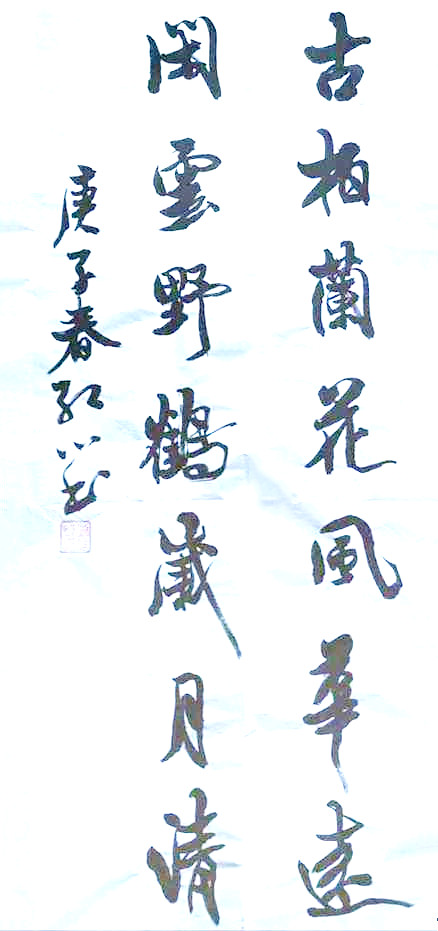 古柏蘭花風華遠
閑雲野鶴歲月情
庚子春紅